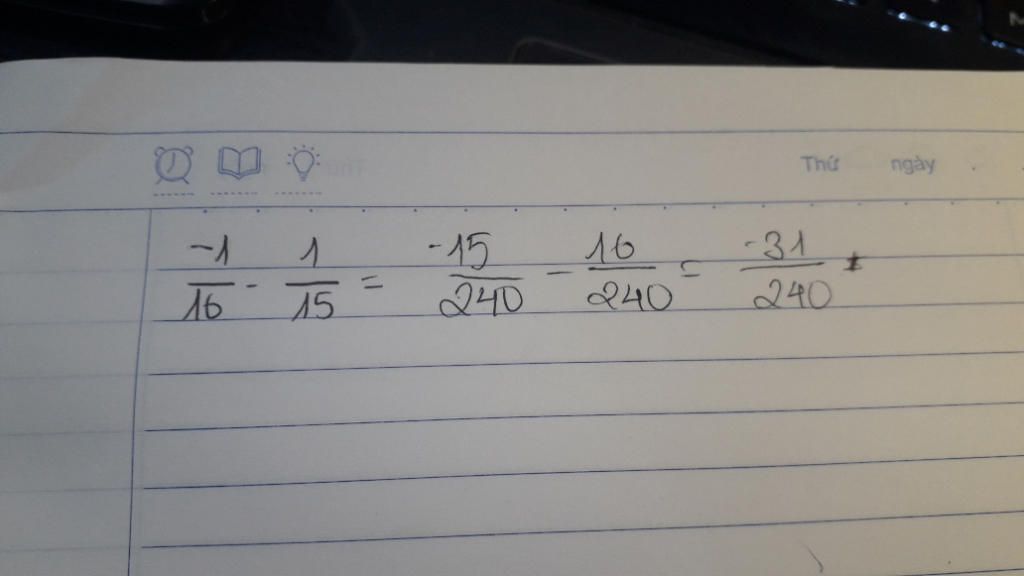 Thứ ngày
-1/16 - 1/15 = -15/240 - 16/240 = -31/240